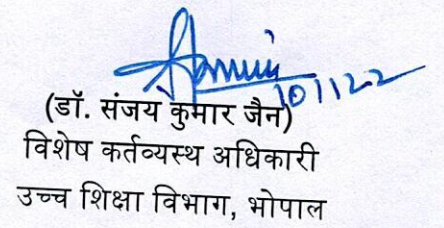 10/1/22
(डॉ. संजय कुमार जैन)
विशेष कर्तव्यस्थ अधिकारी
उच्च शिक्षा विभाग, भोपाल